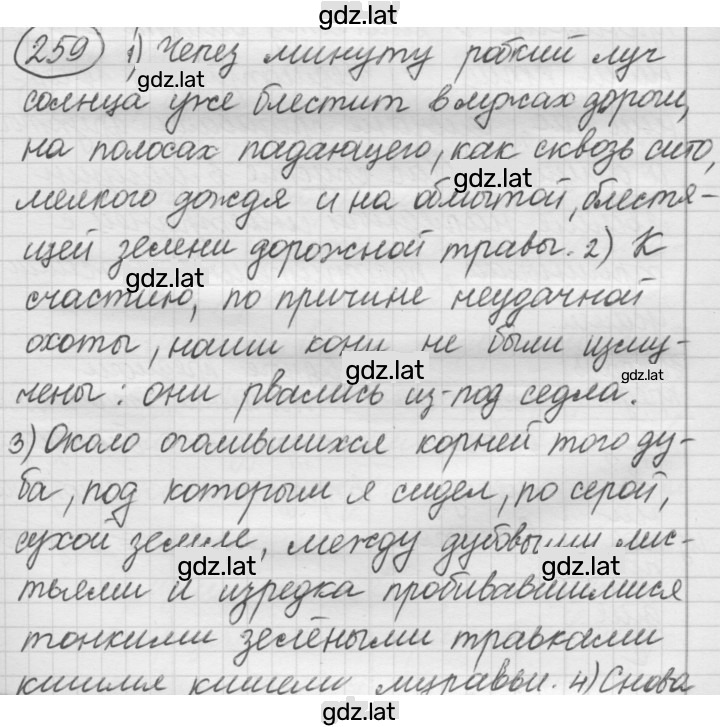 gdz.lat
259 1) Через минуту робкий луч
gdz.lat
солнца уже блестит в лужах дороги,
на полосах падающего, как сквозь сито,
gdz.lat
мелкого дождя и на обмытой, блестя-
щей зелени дорожной травы. 2) К
gdz.lat
счастию, по причине неудачной
охоты, наши кони не были изму-
gdz.lat
gdz.lat
чены: они рвались из-под седла.
3) Около оголившихся корней того ду-
ба, под которым я сидел, по серой,
сухой земле, между дубовыми лис-
gdz.lat
gdz.lat
тьями и изредка пробивавшимися
тонкими зелёными травками
кишмя кишели муравьи. 4) Снова
gdz.lat